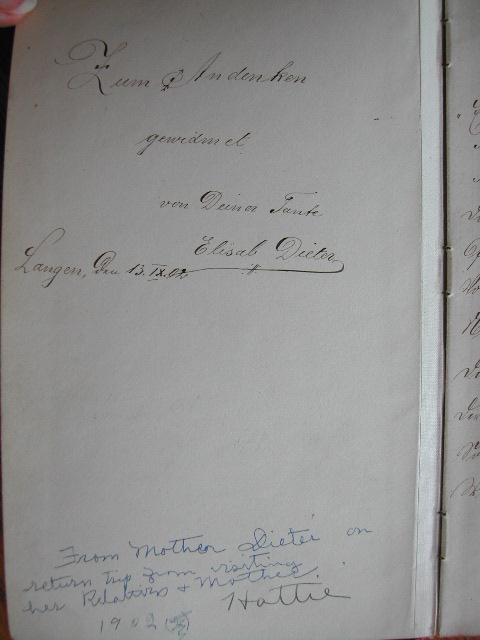 Zum Andenken
gewidmet
von Deiner Tante
Elisab Dieter
Langen, Den 13. IX. 02
From Mother Dieter on
return trip from visiting
her Relatives & Mother.
Hattie
1902